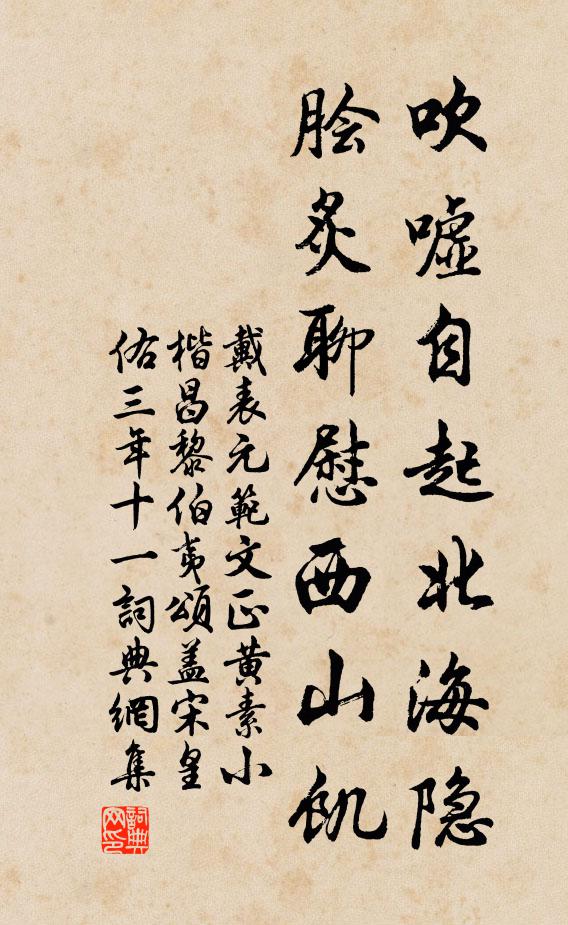 吹嘘自起北海隐
脍炙聊慰西山饥
戴表元範文正黄素小
楷昌黎伯夷頌盖宋皇
佑三年十一詞典網集
詞典網印